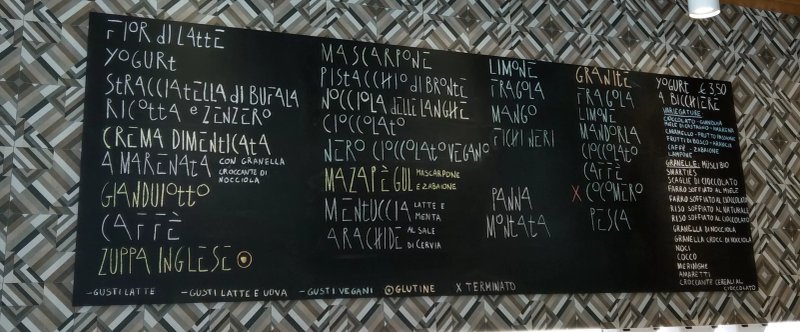 FIOR di LATTE
YOGURT
STRACCIATELLA di BUFALA
RICOTTA e ZENZERO
CREMA DIMENTICATA
AMARENATA CON GRANELLA
CROCCANTE DI
NOCCIOLA
GIANDUIOTTO
CAFFÈ
ZUPPA INGLESE
MASCARPONE
PISTACCHIO di BRONTE
NOCCIOLA delle LANGHE
CIOCCOLATO
NERO CIOCCOLATO VEGANO
MAZAPÈGUL MASCARPONE
E ZABAIONE
MENTUCCIA LATTE E
MENTA
ARACHIDE AL SALE
DI CERVIA
LIMONE
FRAGOLA
MANGO
FICHI NERI
PANNA
MONTATA
GRANITE
FRAGOLA
LIMONE
MANDORLA
CIOCCOLATO
CAFFÈ
X COCOMERO
PESCA
YOGURT € 3,50
A BICCHIERE
VARIEGATURE:
CIOCCOLATO - GIANDUIA
MIELE DI CASTAGNO - AMARENA
CARAMELLO - FRUTTO PASSIONE
FRUTTI DI BOSCO - FRAGOLA
CAFFÈ - ZABAIONE
LAMPONE
GRANELLE: MÜSLI BIO
SMARTIES
SCAGLIE DI CIOCCOLATO
FARRO SOFFIATO AL MIELE
FARRO SOFFIATO AL CIOCCOLATO
RISO SOFFIATO AL NATURALE
RISO SOFFIATO AL CIOCCOLATO
GRANELLA DI NOCCIOLA
GRANELLA CROCC. DI NOCCIOLA
NOCI
COCCO
MERINGHE
AMARETTI
CROCCANTE CEREALI AL
CIOCCOLATO
- GUSTI LATTE - GUSTI LATTE E UOVA - GUSTI VEGANI GLUTINE X TERMINATO